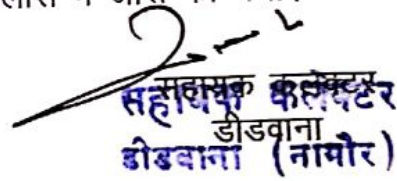 सहायक कलेक्टर
सहायक कलेक्टर
डीडवाना
डीडवाना (नागौर)